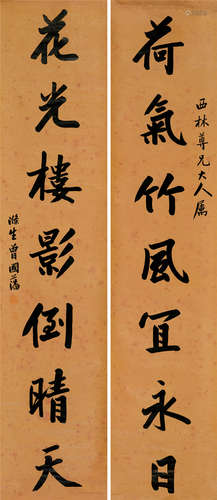 西林尊兄大人属
荷氣竹風宜永日
花光樓影倒晴天
滌生曾國藩